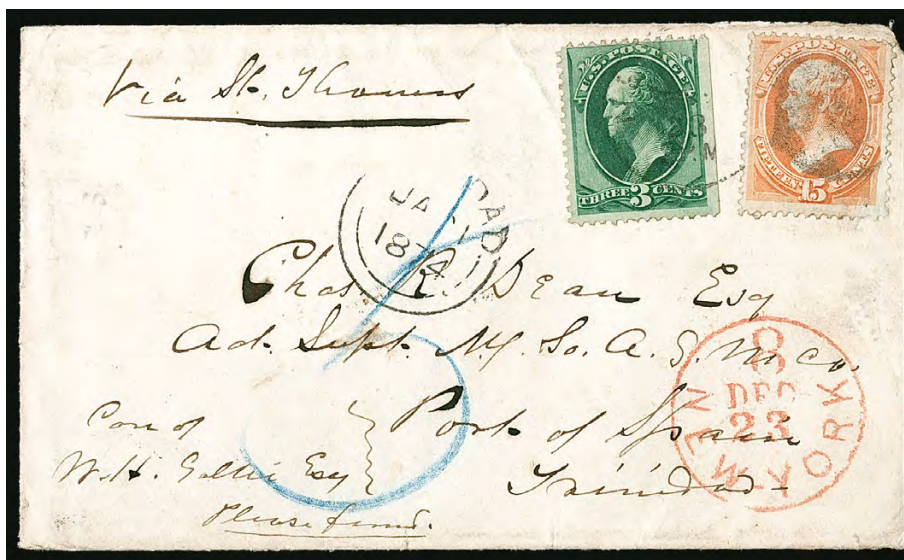 Via St. Thomas
U.S. POSTAGE
THREE 3 CENTS
U.S. POSTAGE
FIFTEEN CENTS
15
DAD
JA
1874
Chas. R. Dean Esq
Ad. Supt. My. So. A. S. M. Co.
Port of Spain
Trinidad
Care of
W.H. Esq
Please forwd.
NEW YORK
8
DEC
23